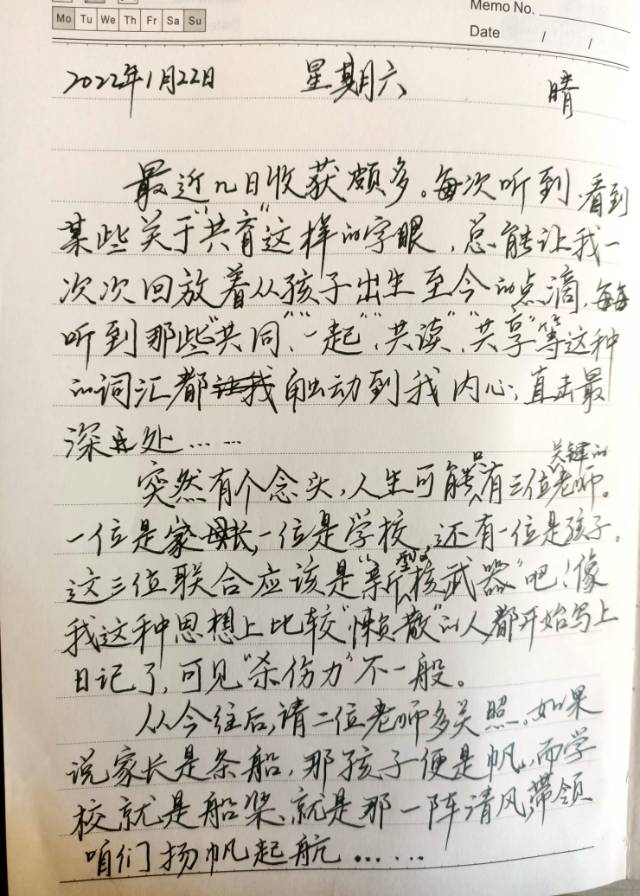 Memo No.
Mo Tu We Th Fr Sa Su
Date / /
2022年1月22日 星期六 晴
最近几日收获颇多。每次听到看到
某些关于"共育"这样的字眼，总能让我一
次次回放着从孩子出生至今的点滴，每每
听到那些"共同"、"一起"、"共读"、"共享"等这种
的词汇都触动到我内心，直击最
深处……
突然有个念头，人生可能只有三位关键的老师。
一位是家长，一位是学校，还有一位是孩子。
这三位联合应该是"新型的核武器"吧！像
我这种思想上比较"懒散"的人都开始写上
日记了，可见"杀伤力"不一般。
从今往后，请二位老师多关照。如果
说家长是条船，那孩子便是帆，而学
校就是船桨，就是那一阵清风带领
咱们扬帆起航……